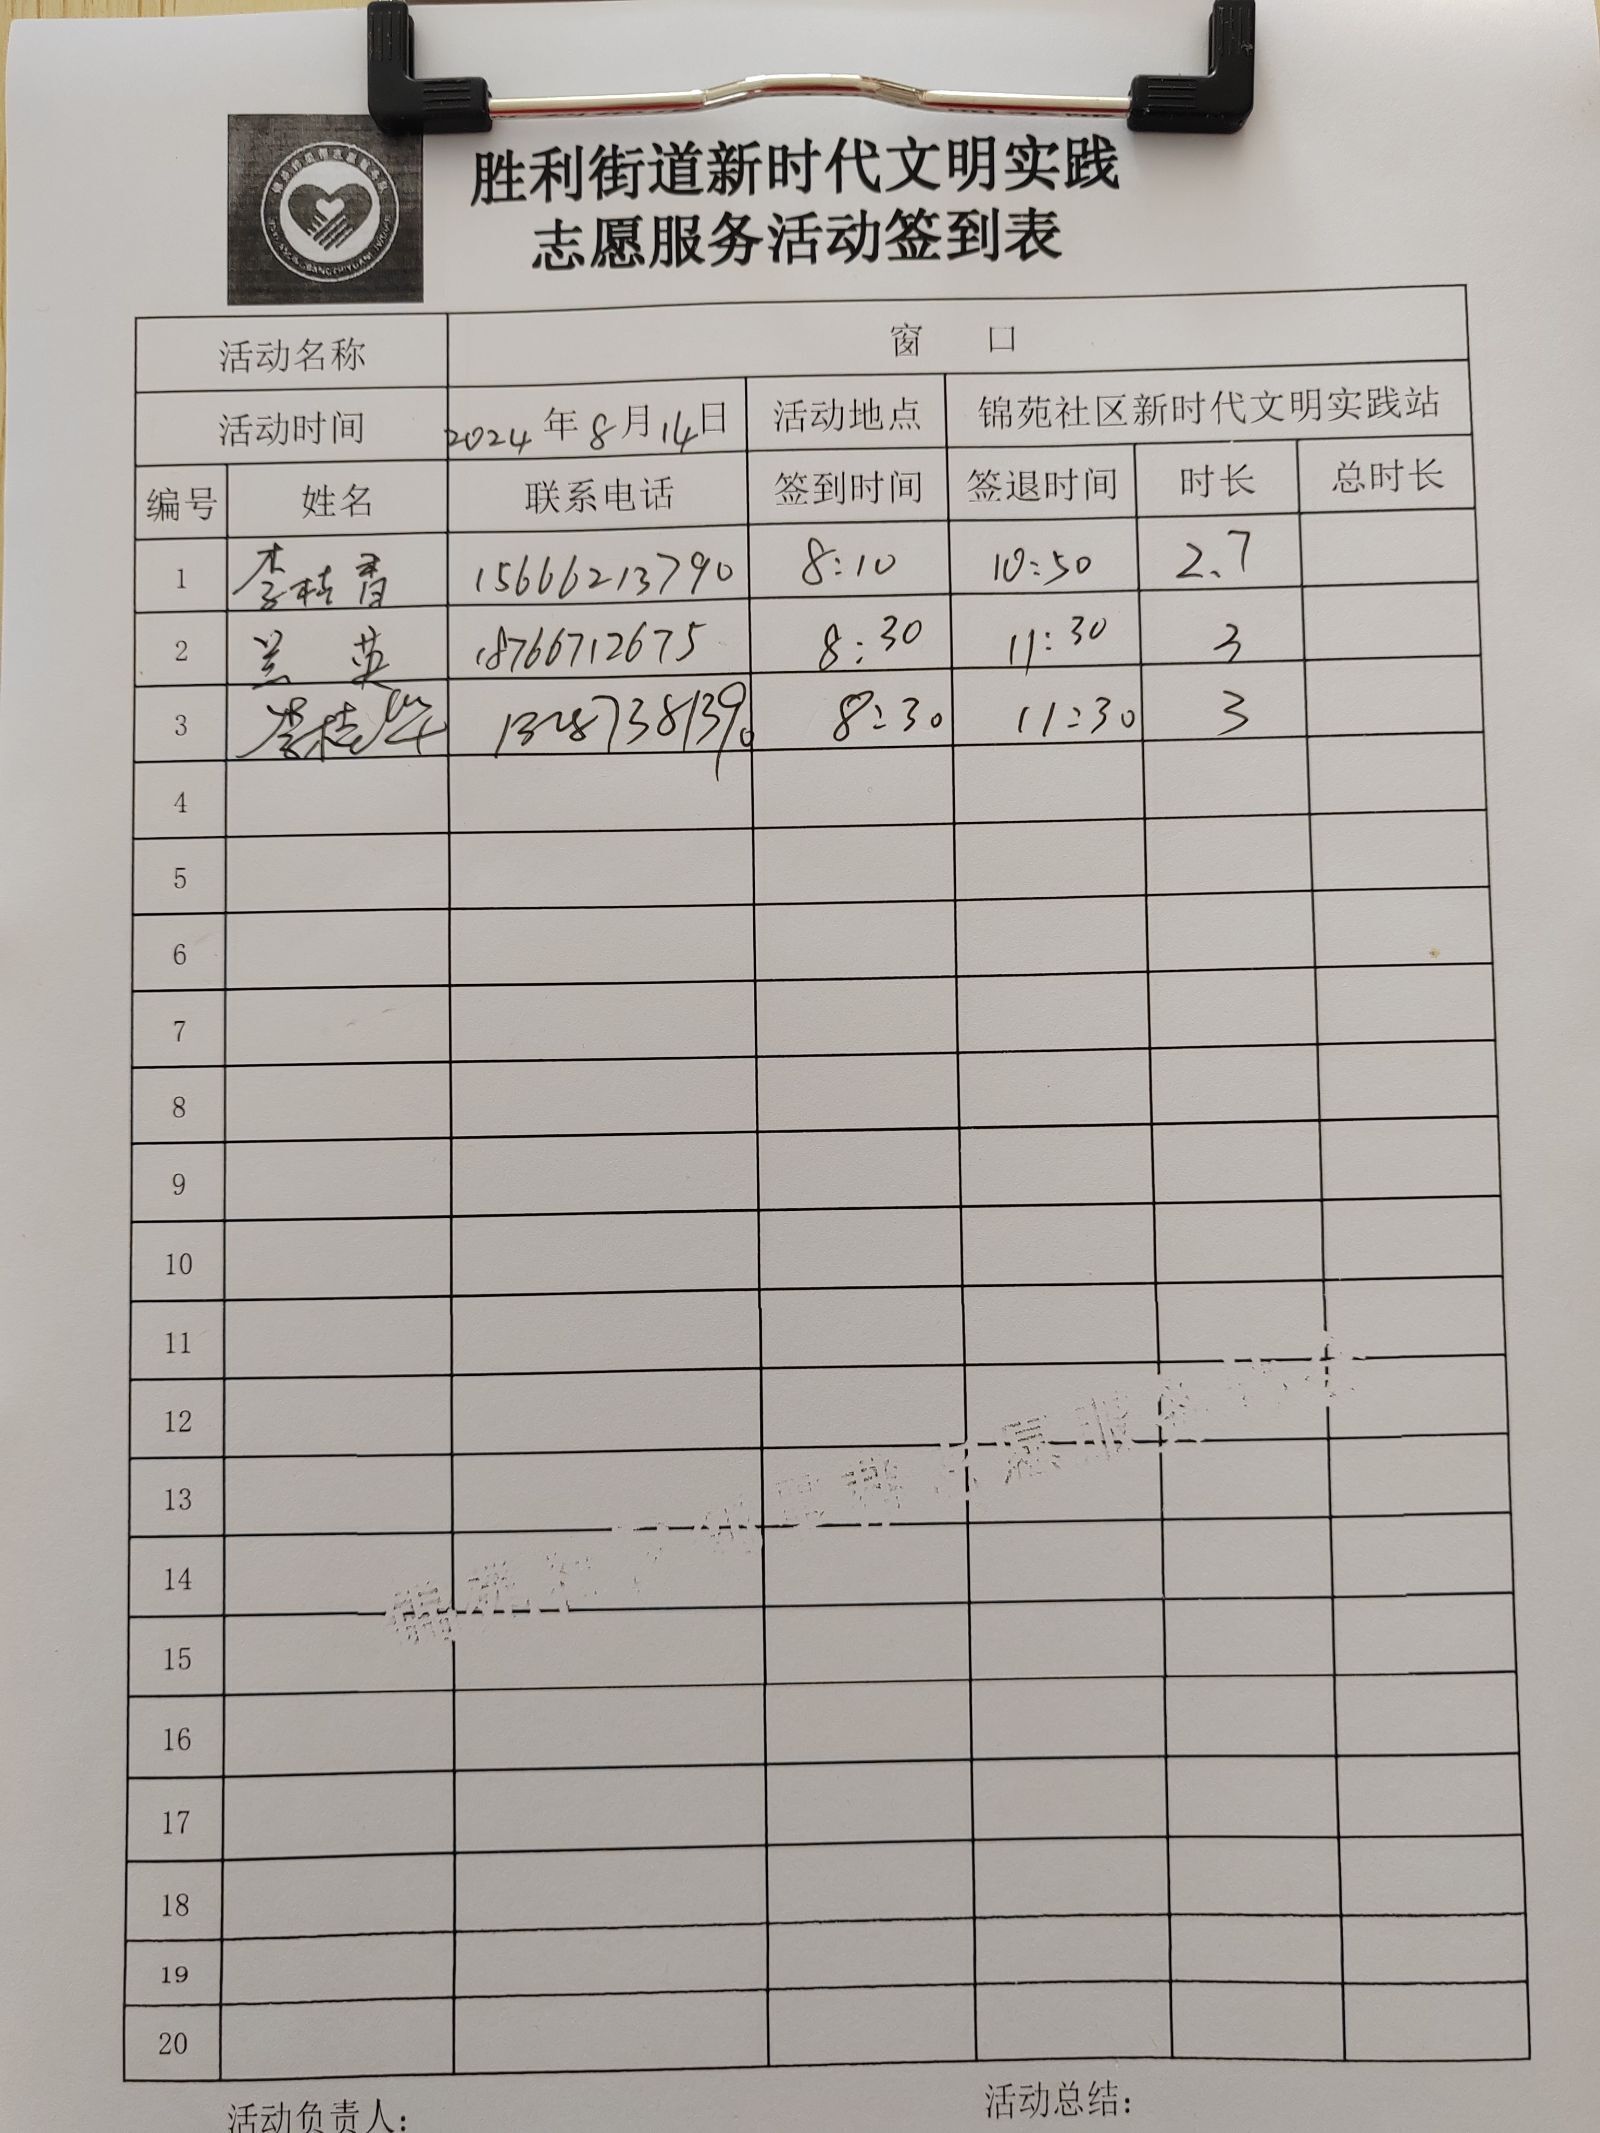 胜利街道新时代文明实践
志愿服务活动签到表
活动名称 窗 口
活动时间 2024年8月14日 活动地点 锦苑社区新时代文明实践站
编号 姓名 联系电话 签到时间 签退时间 时长 总时长
1 李桂青 15666213790 8:10 10:50 2.7
2 兰英 18766712675 8:30 11:30 3
3 李桂华 13287381390 8:30 11:30 3
4
5
6
7
8
9
10
11
12
13
14
15
16
17
18
19
20
活动负责人: 活动总结: